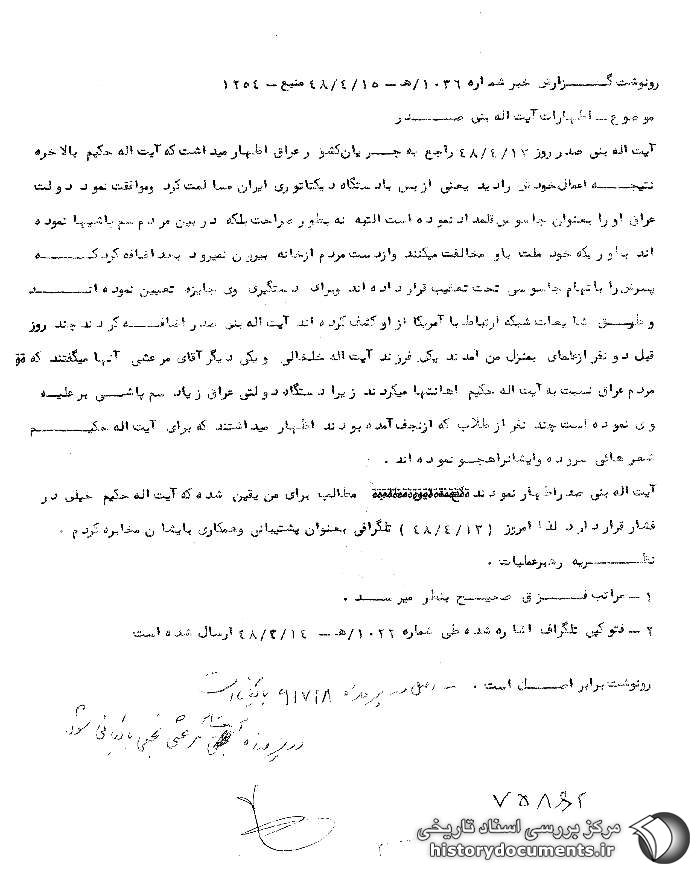 رونوشت گزارش خبر شماره ۱۰۳۶/هـ – ۴۸/۴/۱۵ منبع – ۱۲۵۴
موضوع – اظهارات آیت اله بنی صدر
آیت اله بنی صدر روز ۴۸/۴/۱۳ راجع به جریان کشور عراق اظهار میداشت که آیت اله حکیم بالاخره
نتیجه اعمال خودش را دید یعنی از بس با دستگاه دیکتاتوری ایران مسالمت کرد وموافقت نمود دولت
عراق او را بعنوان جاسوس قلمداد نموده است البته نه بطور صراحت بلکه در بین مردم سم پاشیها نموده
اند بطوریکه خود ملت باو مخالفت میکنند وازدست مردم ازخانه بیرون نمیرود بعد اضافه کرد که
پسرش را باتهام جاسوسی تحت تعقیب قرار داده اند وبرای دستگیری وی جایزه تعیین نموده اند
و طبق شایعات شبکه ارتباط با آمریکا از او کشف کرده اند آیت اله بنی صدر اضافه کردند چند روز
قبل دو نفر ازعلمای بمنزل من آمدند یکی فرزند آیت اله خلخالی ویکی دیگر آقای مرعشی آنها میگفتند که
مردم عراق نسبت به آیت اله حکیم اهانتها میکردند زیرا دستگاه دولتی عراق زیاد سم پاشی برعلیه
وی نموده است چند نفر از طلاب که ازنجف آمده بودند اظهار میداشتند که برای آیت اله حکیم
شعرهائی سروده وایشانراهجو نموده اند .
آیت اله بنی صدر اظهار نمودند مطالب برای من یقین شده که آیت اله حکیم خیلی در
فشار قرار دارد لذا امروز (۴۸/۴/۱۳) تلگرافی بعنوان پشتیبانی وهمکاری بایشان مخابره کردم .
نظریه رهبرعملیات .
۱ – مراتب فوق صحیح بنظر میرسد .
۲ – فتوکپی تلگراف اشاره شده طی شماره ۱۰۲۲/هـ – ۴۸/۳/۱۴ ارسال شده است
رونوشت برابر اصل است . – اصل در پرونده ۹۱۷۱۸ بایگانی است
در پرونده مرعشی نجفی بایگانی شود
۷۵۸۶۲
مرکز بررسی اسناد تاریخی
historydocuments.ir